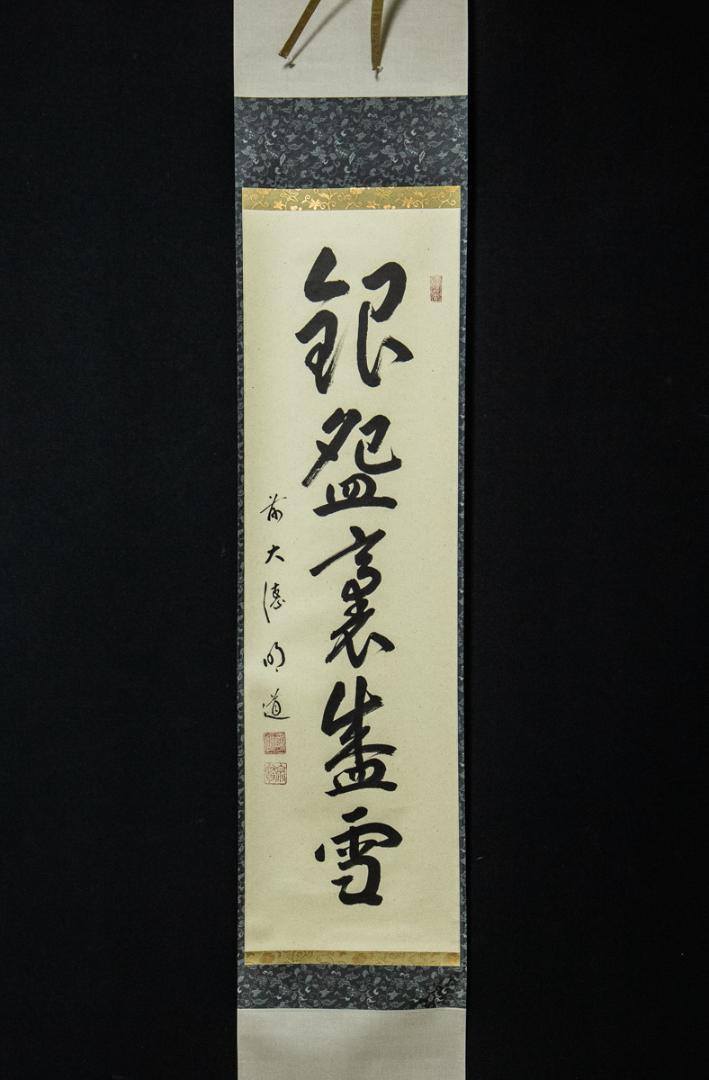 銀盌裏盛雪
前大徳明道